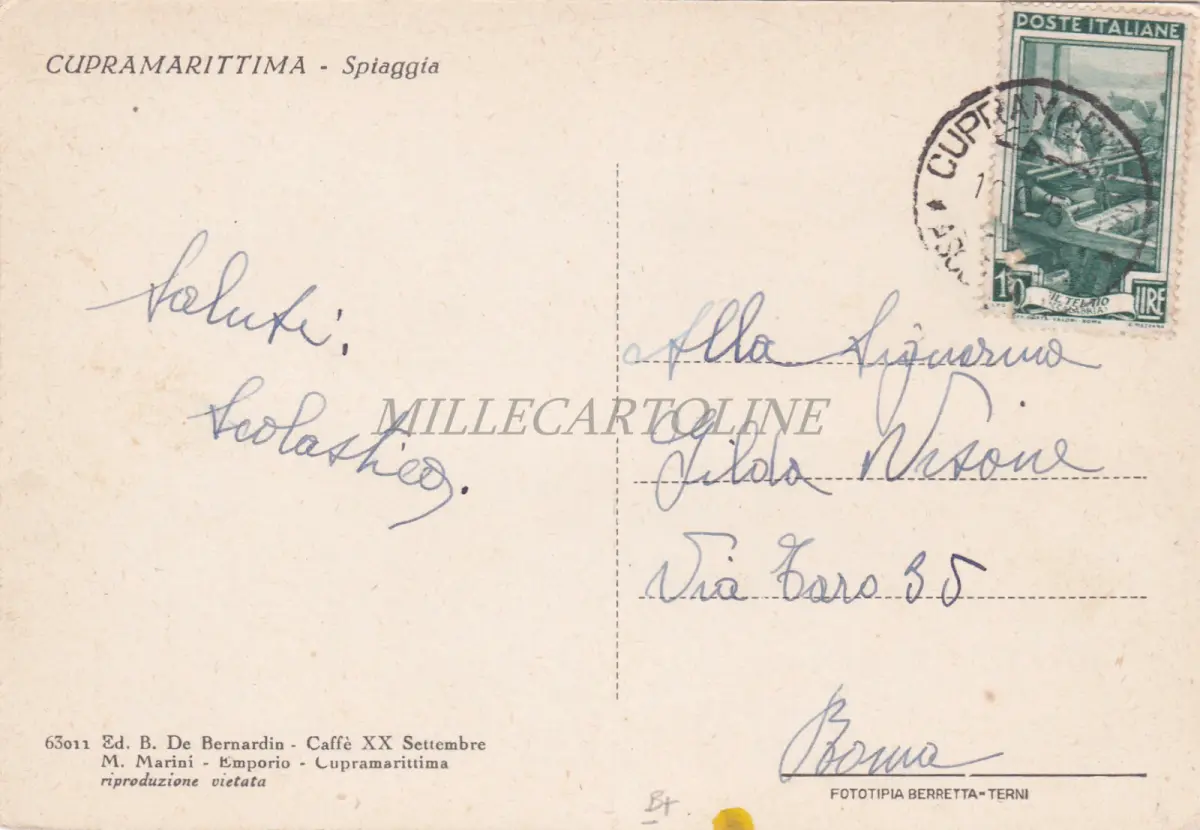 CUPRAMARITTIMA - Spiaggia
POSTE ITALIANE
10 LIRE
IL TELAIO
CUPRAMARITTIMA
Saluti
Scolastico.
MILLECARTOLINE
Alla Signorina
Gilda Visone
Via Taro 35
Roma
63011 Ed. B. De Bernardin - Caffè XX Settembre
M. Marini - Emporio - Cupramarittima
riproduzione vietata
FOTOTIPIA BERRETTA-TERNI